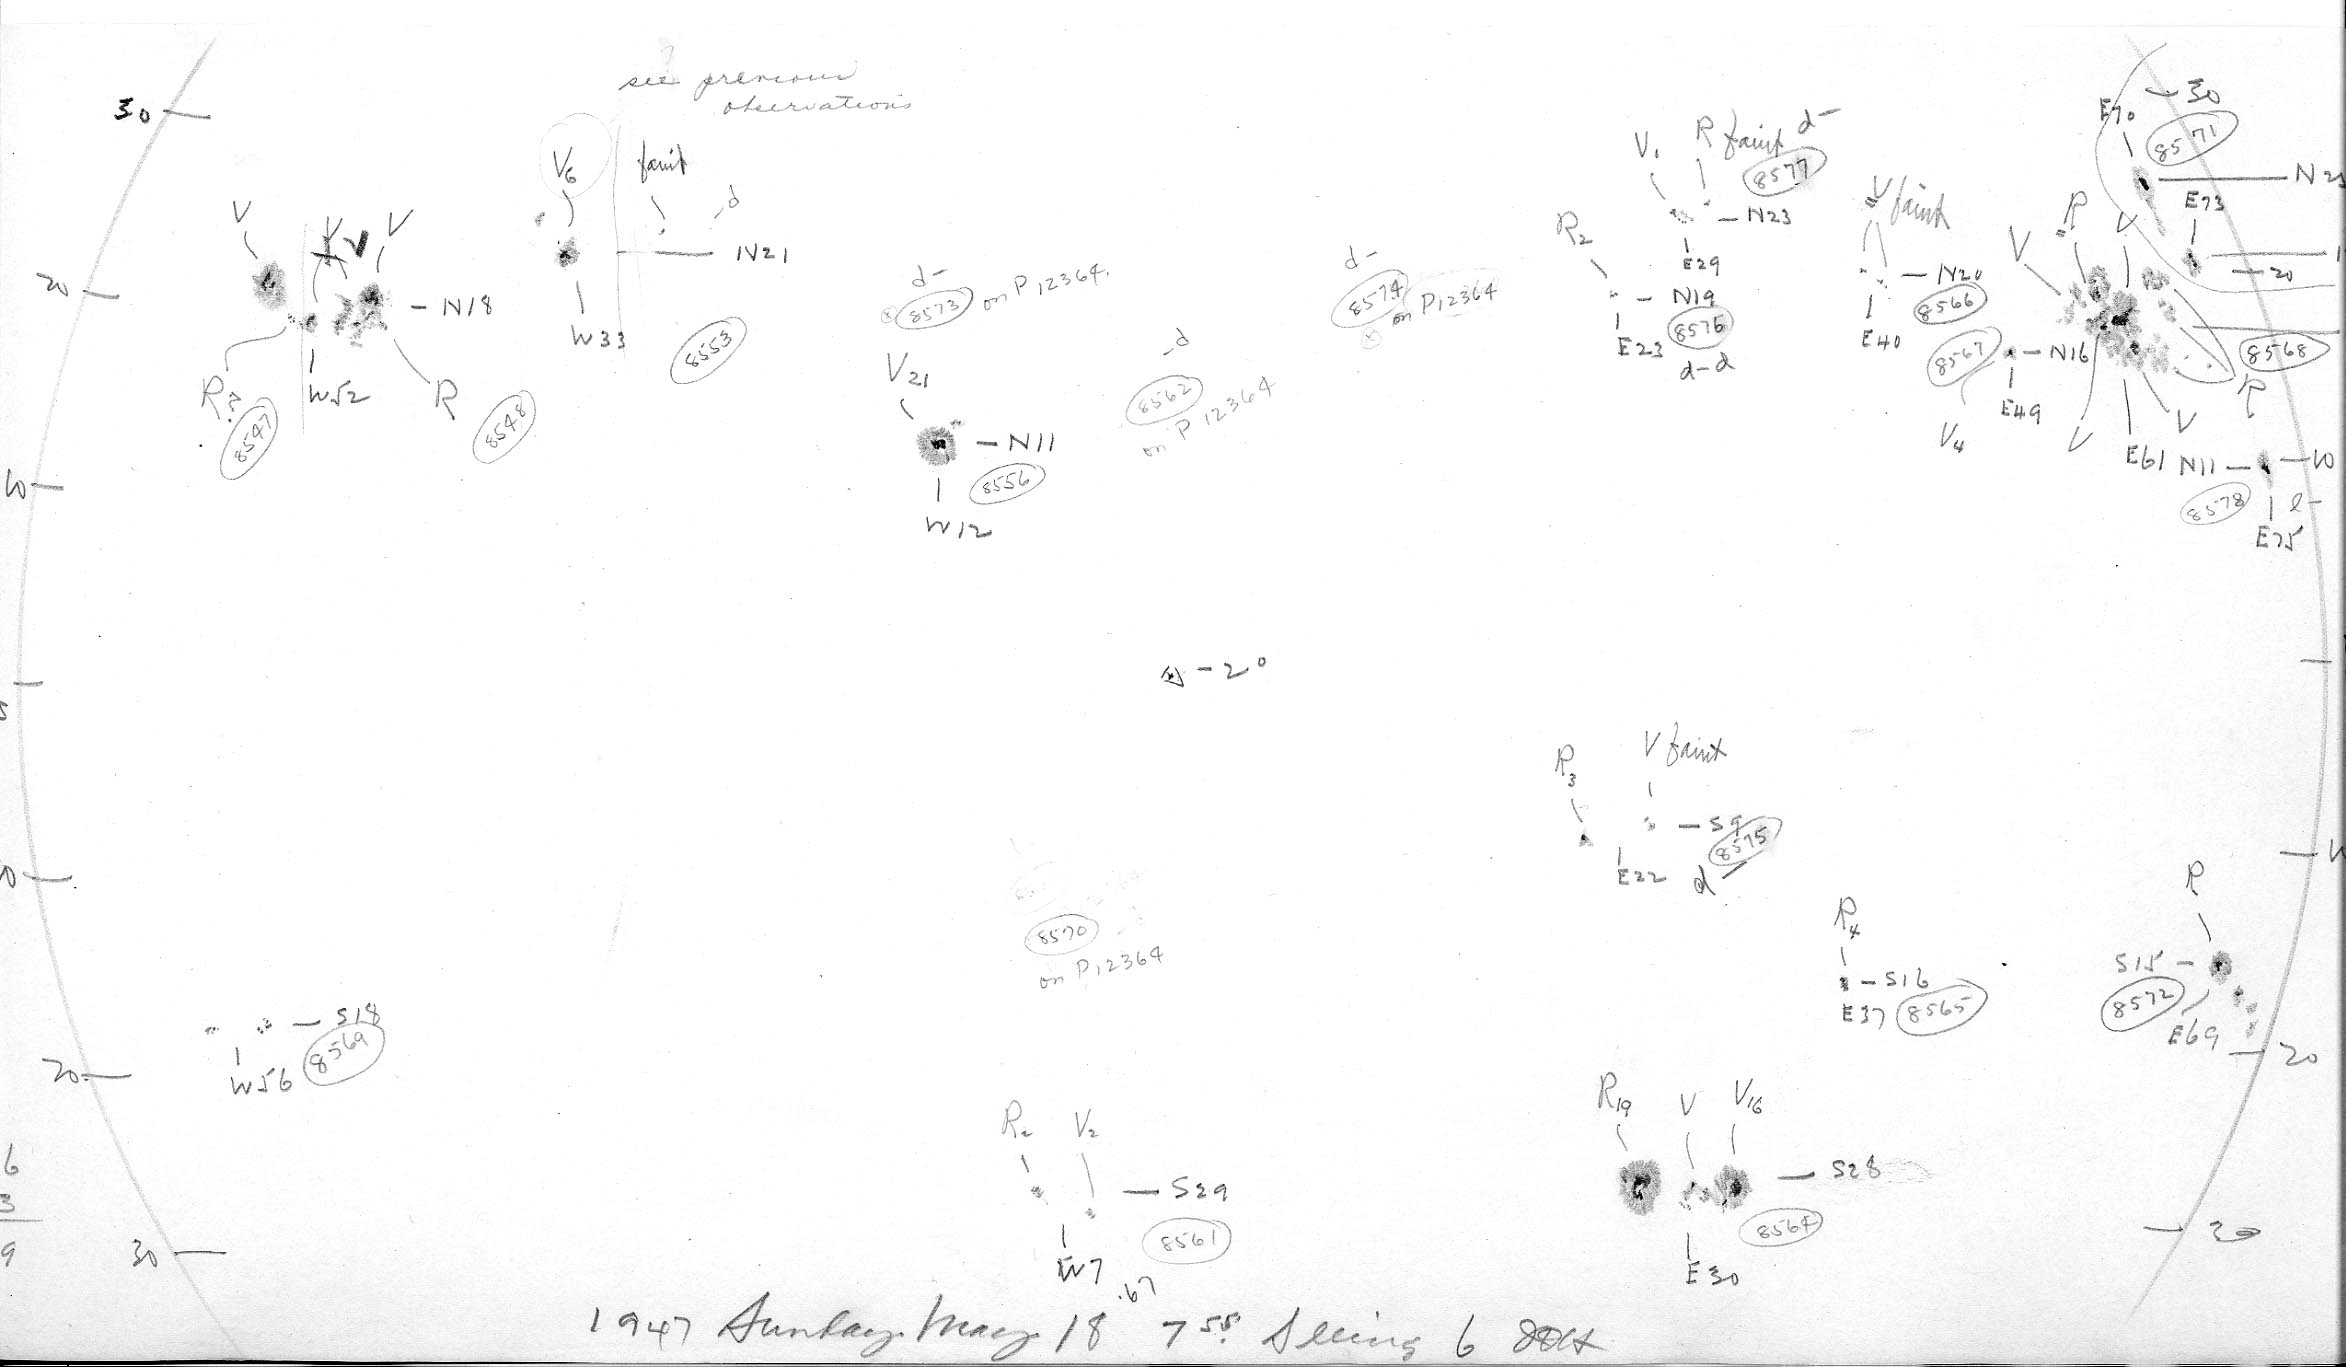 see previous
observations
30
V
V
V
V6
faint
-d
N21
W33
8553
20
N18
R?
8547
W52
R
8548
d-
8573 on P12364.
V21
N11
8556
W12
-d
8562
on P12364
d-
8574
on P12364
V1
R faint d-
8577
N23
E29
R2
N19
E23
8576
d-d
V faint
N20
8566
E40
8567
N16
E49
V4
E70
30
8571
E73
20
V
R
V
8568
R
V
V
E61
N11
10
8578
l-
E75
10
-2°
R3
V faint
S9
8575
E22
d
R4
S16
E37
8565
R
S15
8572
E69
20
8570
on P12364
S18
8569
W56
20
R2
V2
S29
8561
W7
R19
V
V16
S28
8564
E30
30
30
6
3
9
1947 Sunday. May. 18 .67 7 55 Seeing 6